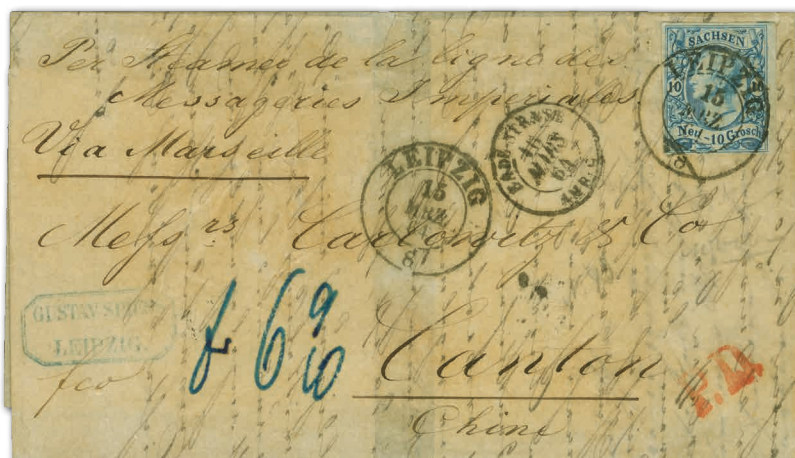 Per Steamer de la ligne des
Messageries Imperiales
Via Marseille
SACHSEN
10
Neu-10 Grosch
LEIPZIG
15
MRZ
BADE-STRASB
16
MARS
64
AMB. C
LEIPZIG
15
MRZ
Messrs Carlowitz & Co
GUSTAV
LEIPZIG.
f 6 9/10
fco
Canton
Chine
P.D.